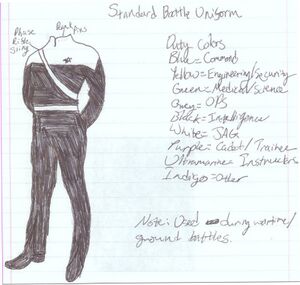 Standard Battle Uniform
Rank Pins
Phase
Rifle
Sling
Duty Colors
Blue = Command
Yellow = Engineering/Security
Green = Medical/Science
Grey = OPs
Black = Intelligence
White = JAG
Purple = Cadet/Trainee
Ultramarine = Instructors
Indigo = Other
Note: Used during wartime/
ground battles.